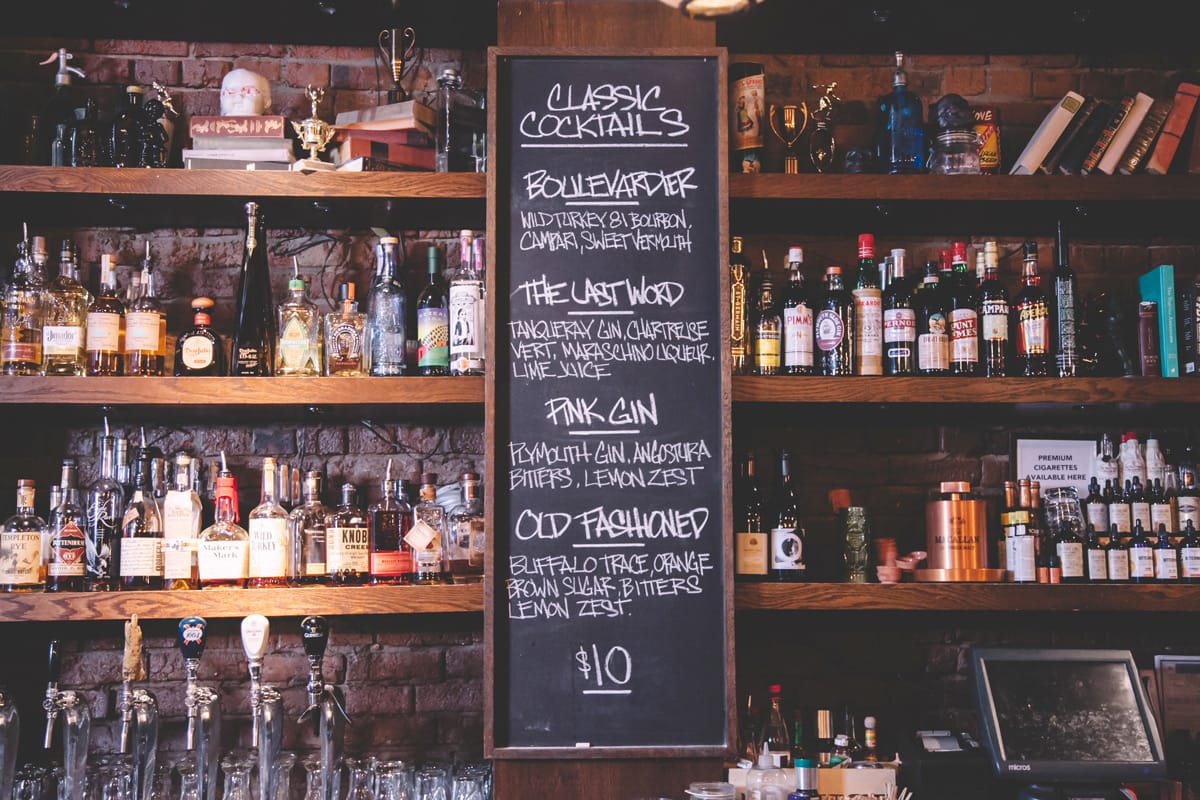 CLASSIC
COCKTAILS
BOULEVARDIER
WILD TURKEY 81 BOURBON,
CAMPARI, SWEET VERMOUTH
THE LAST WORD
TANQUERAY GIN CHARTREUSE
VERT, MARASCHINO LIQUEUR,
LIME JUICE
PINK GIN
PLYMOUTH GIN, ANGOSTURA
BITTERS, LEMON ZEST
OLD FASHIONED
BUFFALO TRACE, ORANGE
BROWN SUGAR, BITTERS
LEMON ZEST.
$10
PREMIUM
CIGARETTES
AVAILABLE HERE
PIMM'S
PERNOD
PUNT
CAMPARI
Maker's
Mark
KNOB
CREEK
RYE
MACALLAN
micros